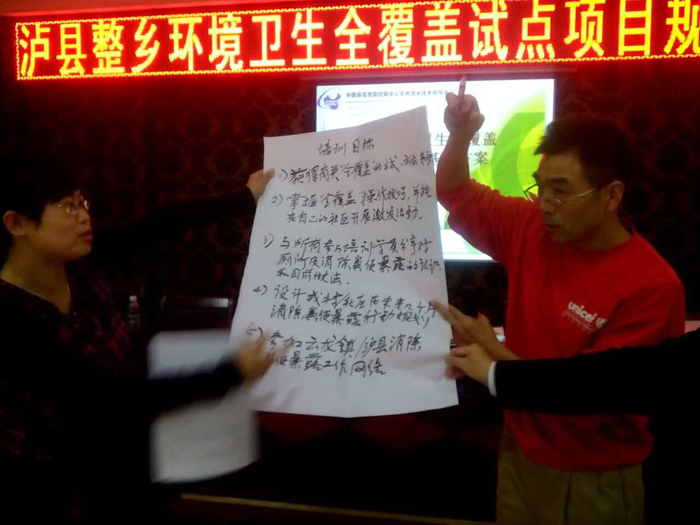 泸县整乡环境卫生全覆盖试点项目规
培训目标
1) 获得有关"全覆盖"的
2) 掌握"全覆盖"操作技巧,并能
在自己的社区开展激发活动。
3) 与所有参与培训学员分享对
厕所及消除粪便暴露的认识
和目前做法。
4) 设计或村社区在未来几个月
消除粪便暴露行动规划
参加云龙镇/泸县消除
粪便暴露工作网络
CDC
生 覆盖
方案
unicef